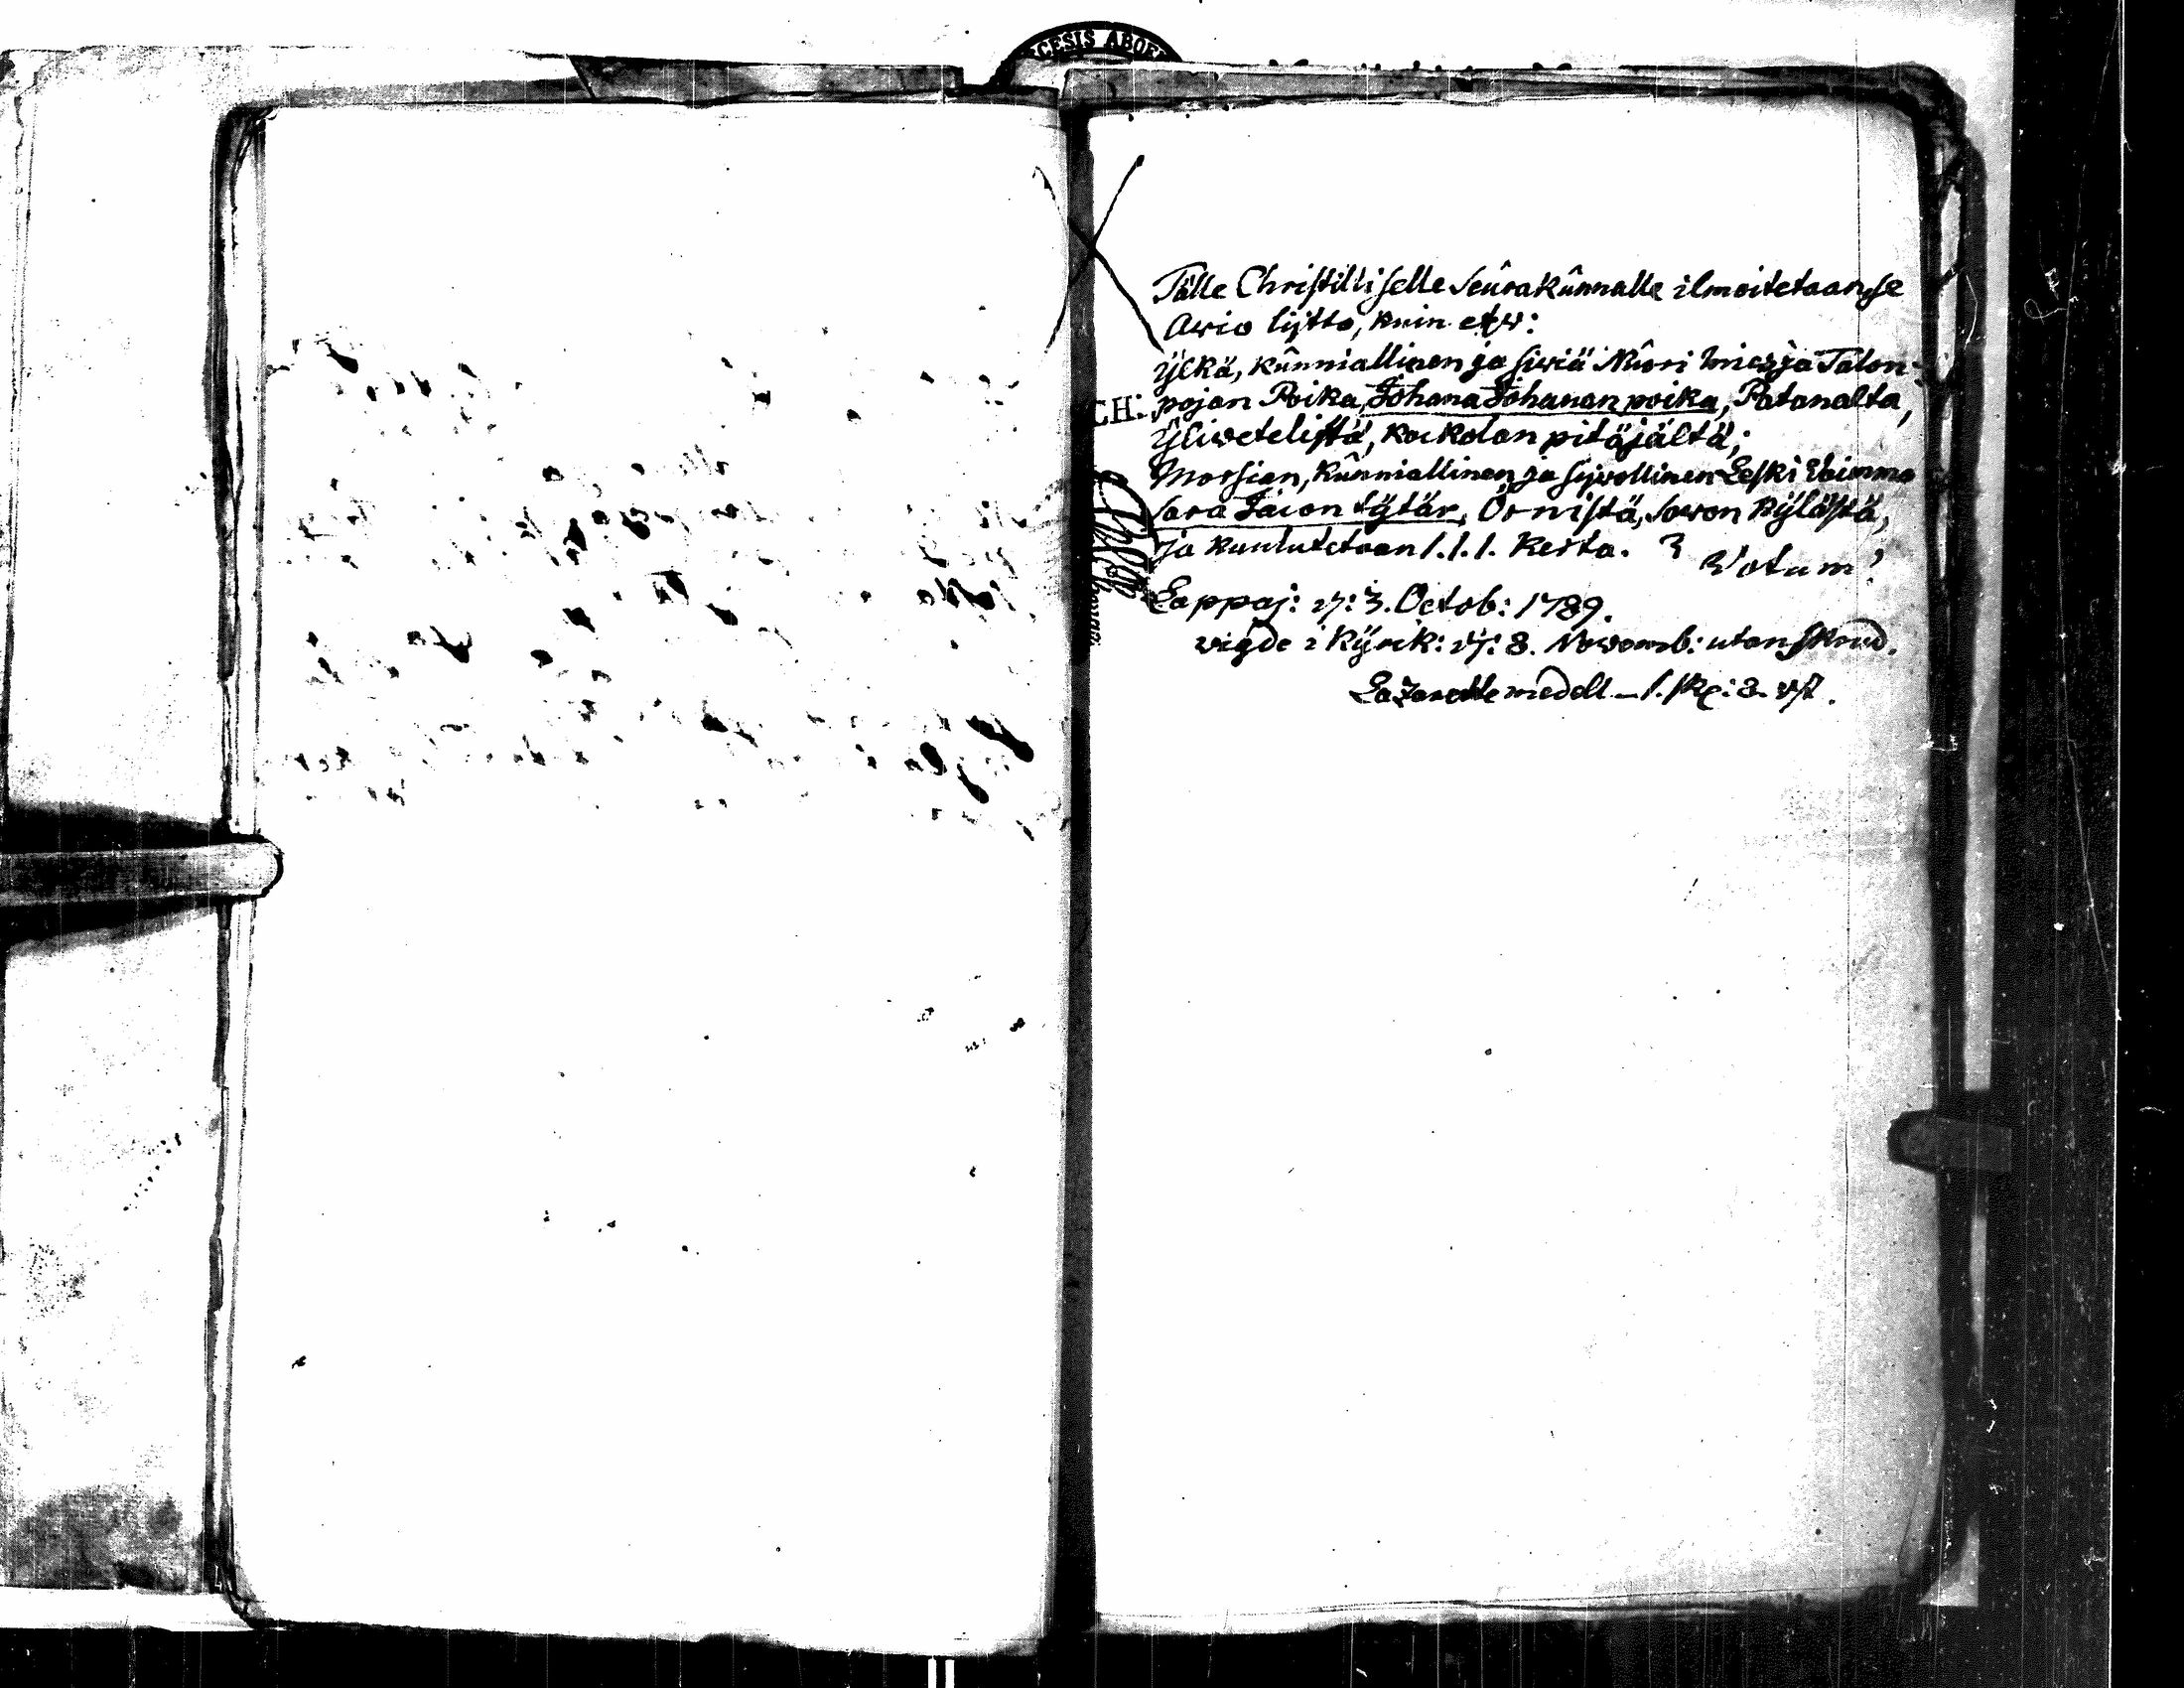 CESIS ABOE
Tälle Christilliselle Seurakunnalle ilmoitetaan se
Avio lijtto, kuin etw:
Ylkä, kunniallinen ja siviä Nuori mies ja Talon-
pojan Poika, Johana Johanan poika, Patanalta,
Yliwetelistä, Kockolan pitäjältä;
Morsian, kunniallinen ja sijwollinen Leski Waimo
Sara Jacon tytär, Örnistä, Sawon Kylästä,
ja kuulutetaan 1. 1. 1. Kerta. Votum!
CH:
Lappaj: d: 3. Octob: 1789.
vigde i Kyrck: d: 8. Novemb: utan skrud.
Lazarette medell 1. : 8. st.